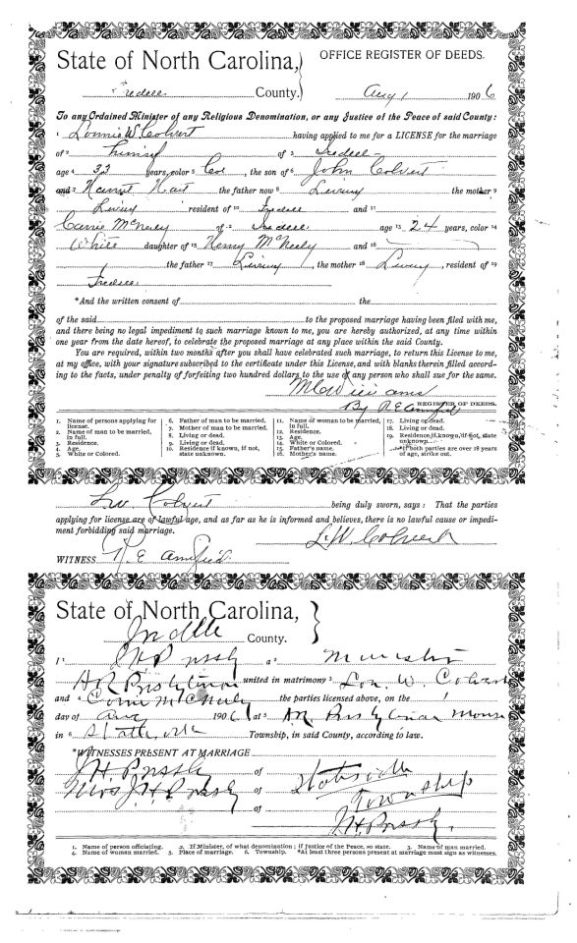 State of North Carolina,
OFFICE REGISTER OF DEEDS.
Iredell County. Aug 1 1906
To any Ordained Minister of any Religious Denomination, or any Justice of the Peace of said County:
1 Lonnie W. Colvert having applied to me for a LICENSE for the marriage
of 2 himself of 3 Iredell
age 4 33 years, color 5 Col, the son of 6 John Colvert
and 7 Harriet Hart the father now 8 Living the mother 9
Living resident of 10 Iredell and 11
Carrie McNeely of 12 Iredell age 13 24 years, color 14
White daughter of 15 Henry McNeely and 16
the father 17 Living, the mother 18 Living, resident of 19
Iredell
*And the written consent of the
of the said to the proposed marriage having been filed with me,
and there being no legal impediment to such marriage known to me, you are hereby authorized, at any time within
one year from the date hereof, to celebrate the proposed marriage at any place within the said County.
You are required, within two months after you shall have celebrated such marriage, to return this License to me,
at my office, with your signature subscribed to the certificate under this License, and with blanks therein filled accord-
ing to the facts, under penalty of forfeiting two hundred dollars to the use of any person who shall sue for the same.
By R E Armfield REGISTER OF DEEDS.
1. Name of persons applying for license.
2. Name of man to be married, in full.
3. Residence.
4. Age.
5. White or Colored.
6. Father of man to be married.
7. Mother of man to be married.
8. Living or dead.
9. Living or dead.
10. Residence if known, if not, state unknown.
11. Name of woman to be married, in full.
12. Residence.
13. Age.
14. White or Colored.
15. Father's name.
16. Mother's name.
17. Living or dead.
18. Living or dead.
19. Residence, if known, if not, state unknown.
*If both parties are over 18 years of age, strike out.
L.W. Colvert being duly sworn, says: That the parties
applying for license are of lawful age, and as far as he is informed and believes, there is no lawful cause or impedi-
ment forbidding said marriage.
L.W. Colvert
WITNESS R E Armfield
State of North Carolina,
Iredell County.
I 1 J H Pressly a 2 Minister
A R Presbyterian united in matrimony 3 Lon. W. Colvert
and 4 Carrie McNeely the parties licensed above, on the 1
day of Aug 1906, at 5 A R Presbyterian Manse
in 6 Statesville Township, in said County, according to law.
*WITNESSES PRESENT AT MARRIAGE
J.H. Pressly of Statesville
Mrs J.H. Pressly of Township
of J H Pressly.
1. Name of person officiating. 2. If Minister, of what denomination; if Justice of the Peace, so state. 3. Name of man married.
4. Name of women married. 5. Place of marriage. 6. Township. *At least three persons present at marriage must sign as witnesses.